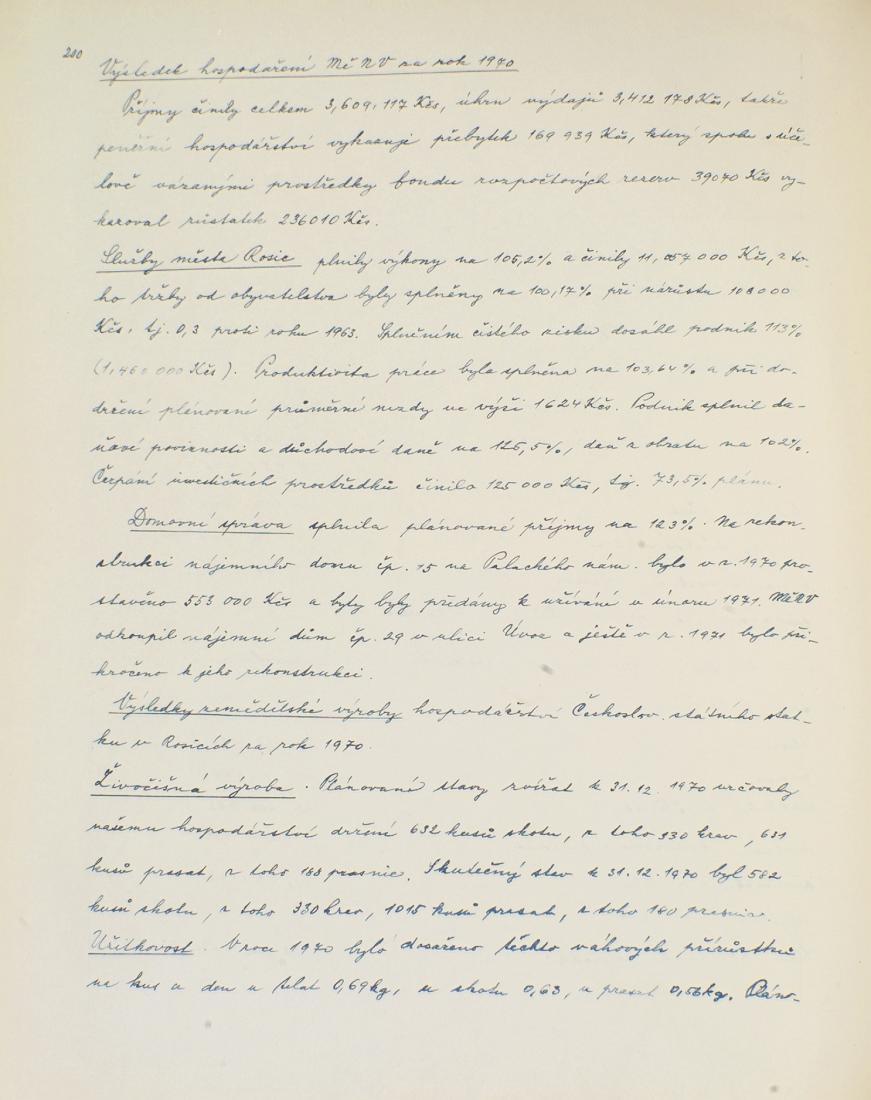 200
Výsledek hospodaření MěNV za rok 1970
Příjmy činily celkem 3,609.117 Kčs, úhrn výdajů 3,412 178 Kčs, takže
peněžní hospodářství vykazuje přebytek 169 939 Kčs, který spolu s úče-
lově vázanými prostředky fondu rozpočtových rezerv 39070 Kčs vy-
kazoval zůstatek 236010 Kčs.
Služby města Rosic plnily výkony na 105,2% a činily 11, 057 000 Kčs, z to-
ho tržby od obyvatelstva byly splněny na 100,17% při nárůstu 108 000
Kčs, tj. 0,3 proti roku 1963. Splněním čistého zisku dosáhl podnik 113%
(1,460 000 Kčs). Produktivita práce byla splněna na 103,64% a při do-
držení plánované průměrné mzdy ve výši 1624 Kčs. Podnik splnil da-
ňové povinnosti a důchodové daně na 125,5%, daň z obratu na 102%.
Čerpání investičních prostředků činilo 125 000 Kčs, tj. 73,5% plánu.
Domovní správa splnila plánované příjmy na 123%. Na rekon-
strukci nájemního domu čp. 15 na Palackého nám. bylo v r. 1970 pro-
stavěno 553 000 Kčs a byty byly předány k užívání v únoru 1971. MěNV
odkoupil nájemní dům čp. 29 v ulici Úvoz a ještě v r. 1971 bylo při-
kročeno k jeho rekonstrukci.
Výsledky zemědělské výroby hospodářství Českoslov. státního stat-
ku v Rosicích za rok 1970.
Živočišná výroba. Plánované stavy zvířat k 31. 12. 1970 určovaly
našemu hospodářství držení 632 kusů skotu, z toho 330 krav, 631
kusů prasat, z toho 188 prasnic. Skutečný stav k 31. 12. 1970 byl 582
kusů skotu, z toho 330 krav, 1015 kusů prasat, z toho 180 prasnic.
Užitkovost. V roce 1970 bylo dosaženo těchto váhových přírůstků
na kus a den u telat 0,69 kg, u skotu 0,63, u prasat 0,56 kg. Pláno-